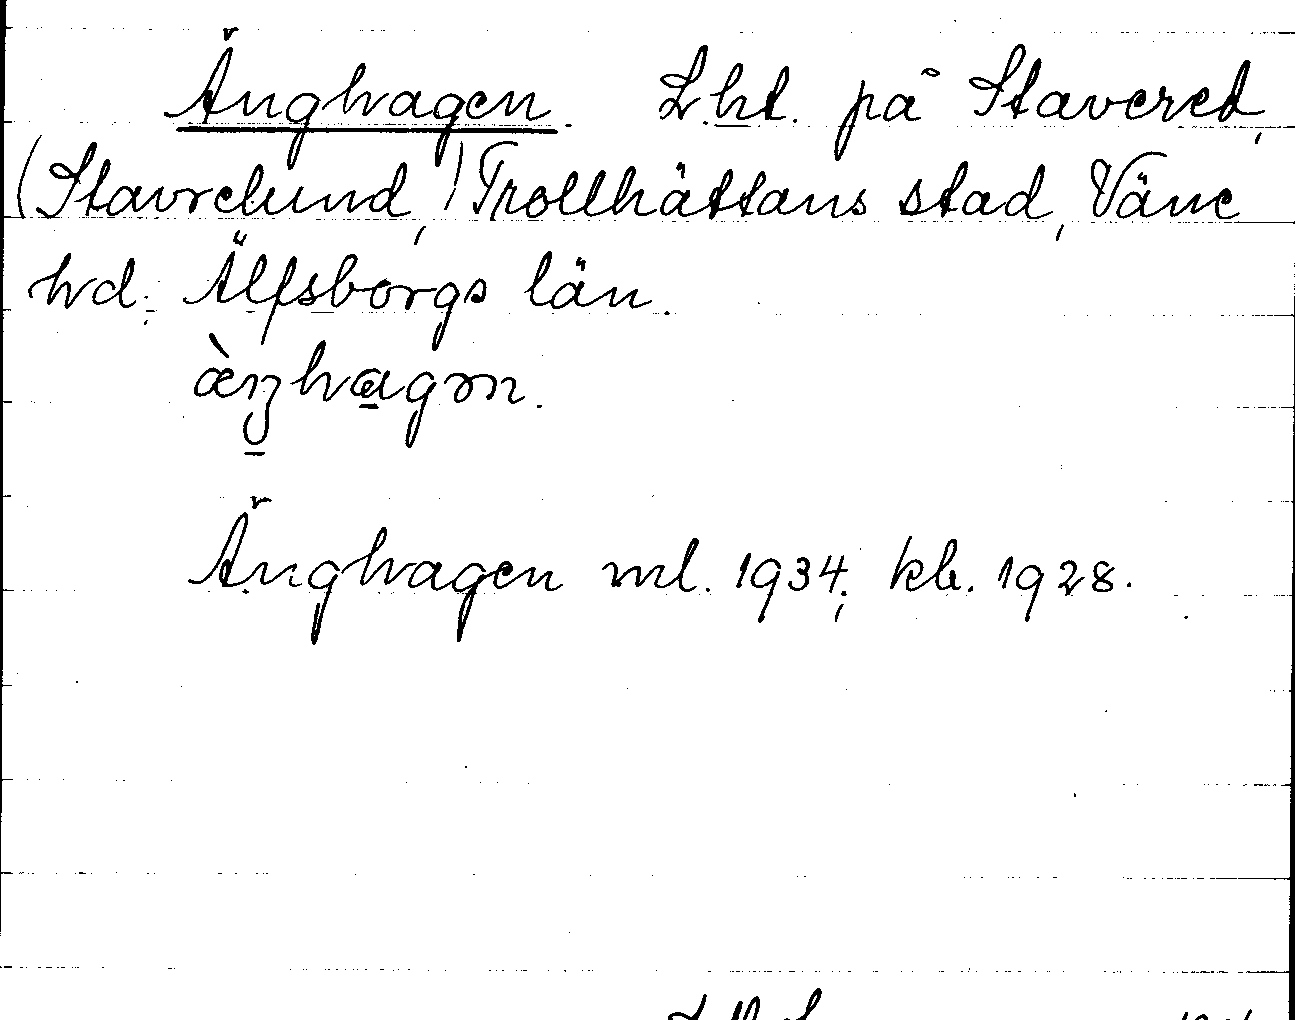 Änghagen. Lht. på Stavered,
(Stavrelund,) Trollhättans stad, Väne
hd. Älfsborgs län.
æ̀ŋhagən.
Änghagen ml. 1934; kb. 1928.